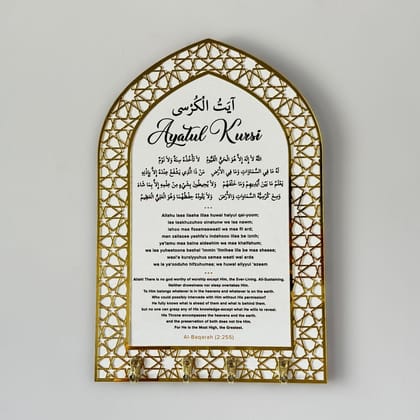 آيَتُ الْكُرْسِى
Ayatul Kursi
اللهُ لَا إِلَهَ إِلَّا هُوَ الْحَيُّ الْقَيُّومُ لَا تَأْخُذُهُ سِنَةٌ وَلَا نَوْمٌ
لَهُ مَا فِي السَّمَاوَاتِ وَمَا فِي الْأَرْضِ مَنْ ذَا الَّذِي يَشْفَعُ عِنْدَهُ إِلَّا بِإِذْنِهِ
يَعْلَمُ مَا بَيْنَ أَيْدِيهِمْ وَمَا خَلْفَهُمْ وَلَا يُحِيطُونَ بِشَيْءٍ مِنْ عِلْمِهِ إِلَّا بِمَا شَاءَ
وَسِعَ كُرْسِيُّهُ السَّمَاوَاتِ وَالْأَرْضَ وَلَا يَئُودُهُ حِفْظُهُمَا وَهُوَ الْعَلِيُّ الْعَظِيمُ
Allahu laaa ilaaha illaa huwal haiyul qai-yoom;
laa taakhuzuhoo sinatunw wa laa nawm;
lahoo maa fissamaawaati wa maa fil ard;
man zallazee yashfa'u indahooo illaa be iznih;
ya'lamu maa baina aideehim wa maa khalfahum;
wa laa yuheetoona beshai 'immin 'ilmihee illa be maa shaaa;
wasi'a kursiyyuhus samaa waati wal arda
wa la ya'ooduho hifzuhumaa; wa huwal aliyyul 'azeem
Allah! There is no god worthy of worship except Him, the Ever-Living, All-Sustaining.
Neither drowsiness nor sleep overtakes Him.
To Him belongs whatever is in the heavens and whatever is on the earth.
Who could possibly intercede with Him without His permission?
He fully knows what is ahead of them and what is behind them,
but no one can grasp any of His knowledge-except what He wills to reveal.
His Throne encompasses the heavens and the earth,
and the preservation of both does not tire Him.
For He is the Most High, the Greatest.
Al-Baqarah (2:255)